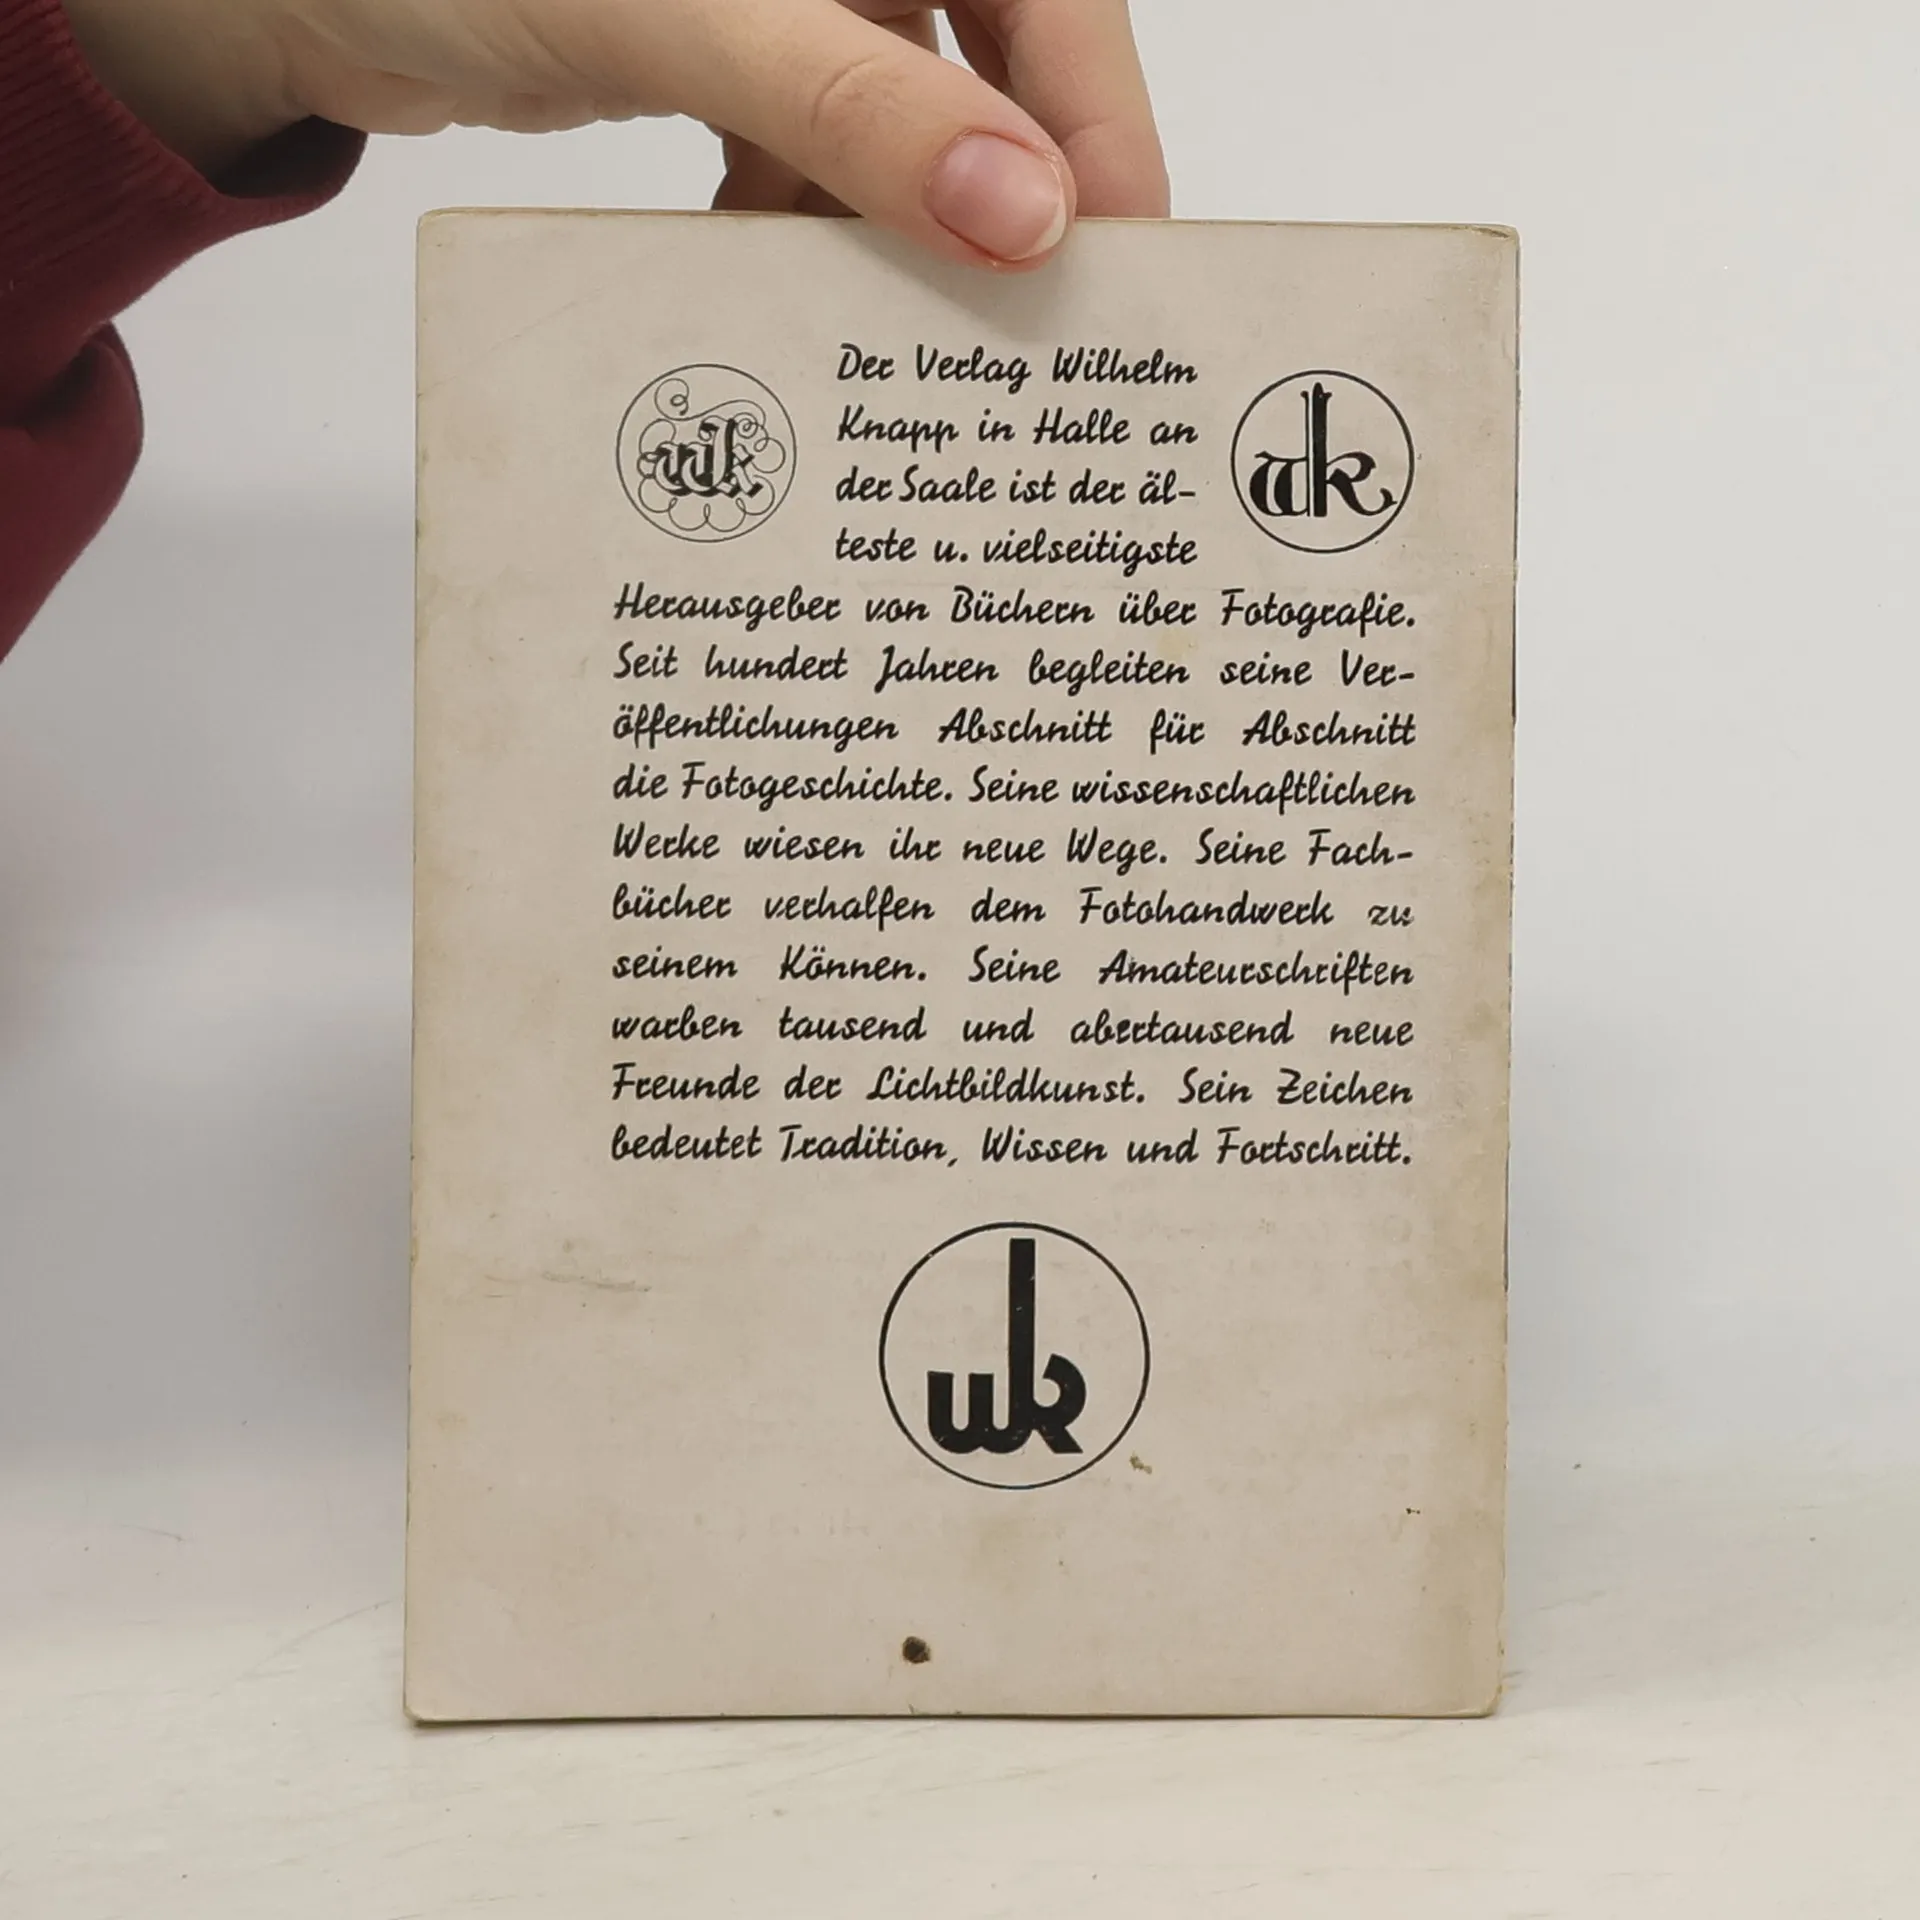 wk
Der Verlag Wilhelm
wk
Knapp in Halle an
der Saale ist der äl-
teste u. vielseitigste
Herausgeber von Büchern über Fotografie.
Seit hundert Jahren begleiten seine Ver-
öffentlichungen Abschnitt für Abschnitt
die Fotogeschichte. Seine wissenschaftlichen
Werke wiesen ihr neue Wege. Seine Fach-
bücher verhalfen dem Fotohandwerk zu
seinem Können. Seine Amateurschriften
warben tausend und abertausend neue
Freunde der Lichtbildkunst. Sein Zeichen
bedeutet Tradition, Wissen und Fortschritt.
wk